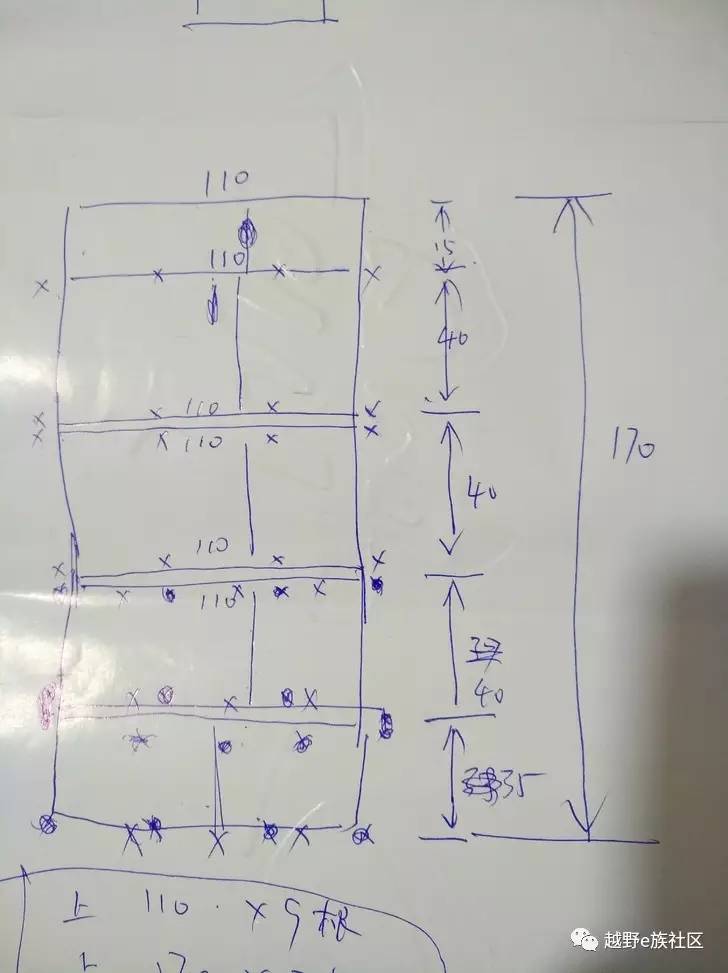 110
15
110
40
110
110
40
170
110
110
37
40
35
上 110 · X 9根
上 170
越野e族社区